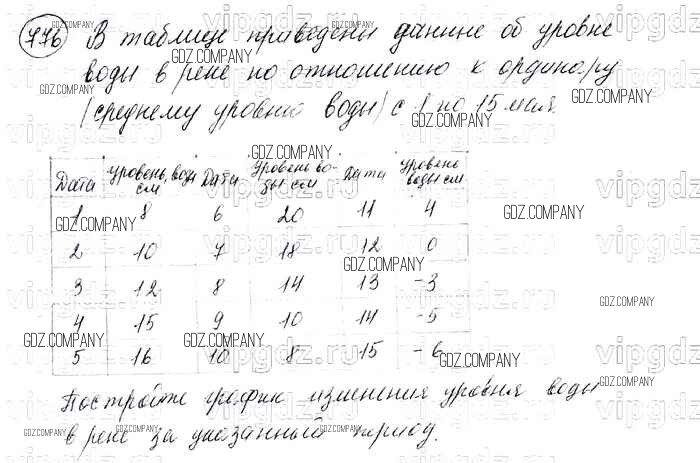 776 В таблице приведены данные об уровне
воды в реке по отношению к ординару
(среднему уровню воды) с 1 по 15 мая.
Дата уровень воды см Дата Уровень воды см Дата уровень воды см
1 8 6 20 11 4
2 10 7 18 12 0
3 12 8 14 13 -3
4 15 9 10 14 -5
5 16 10 8 15 -6
Постройте график изменения уровня воды
в реке за указанный период.
GDZ.COMPANY
vipgdz.ru